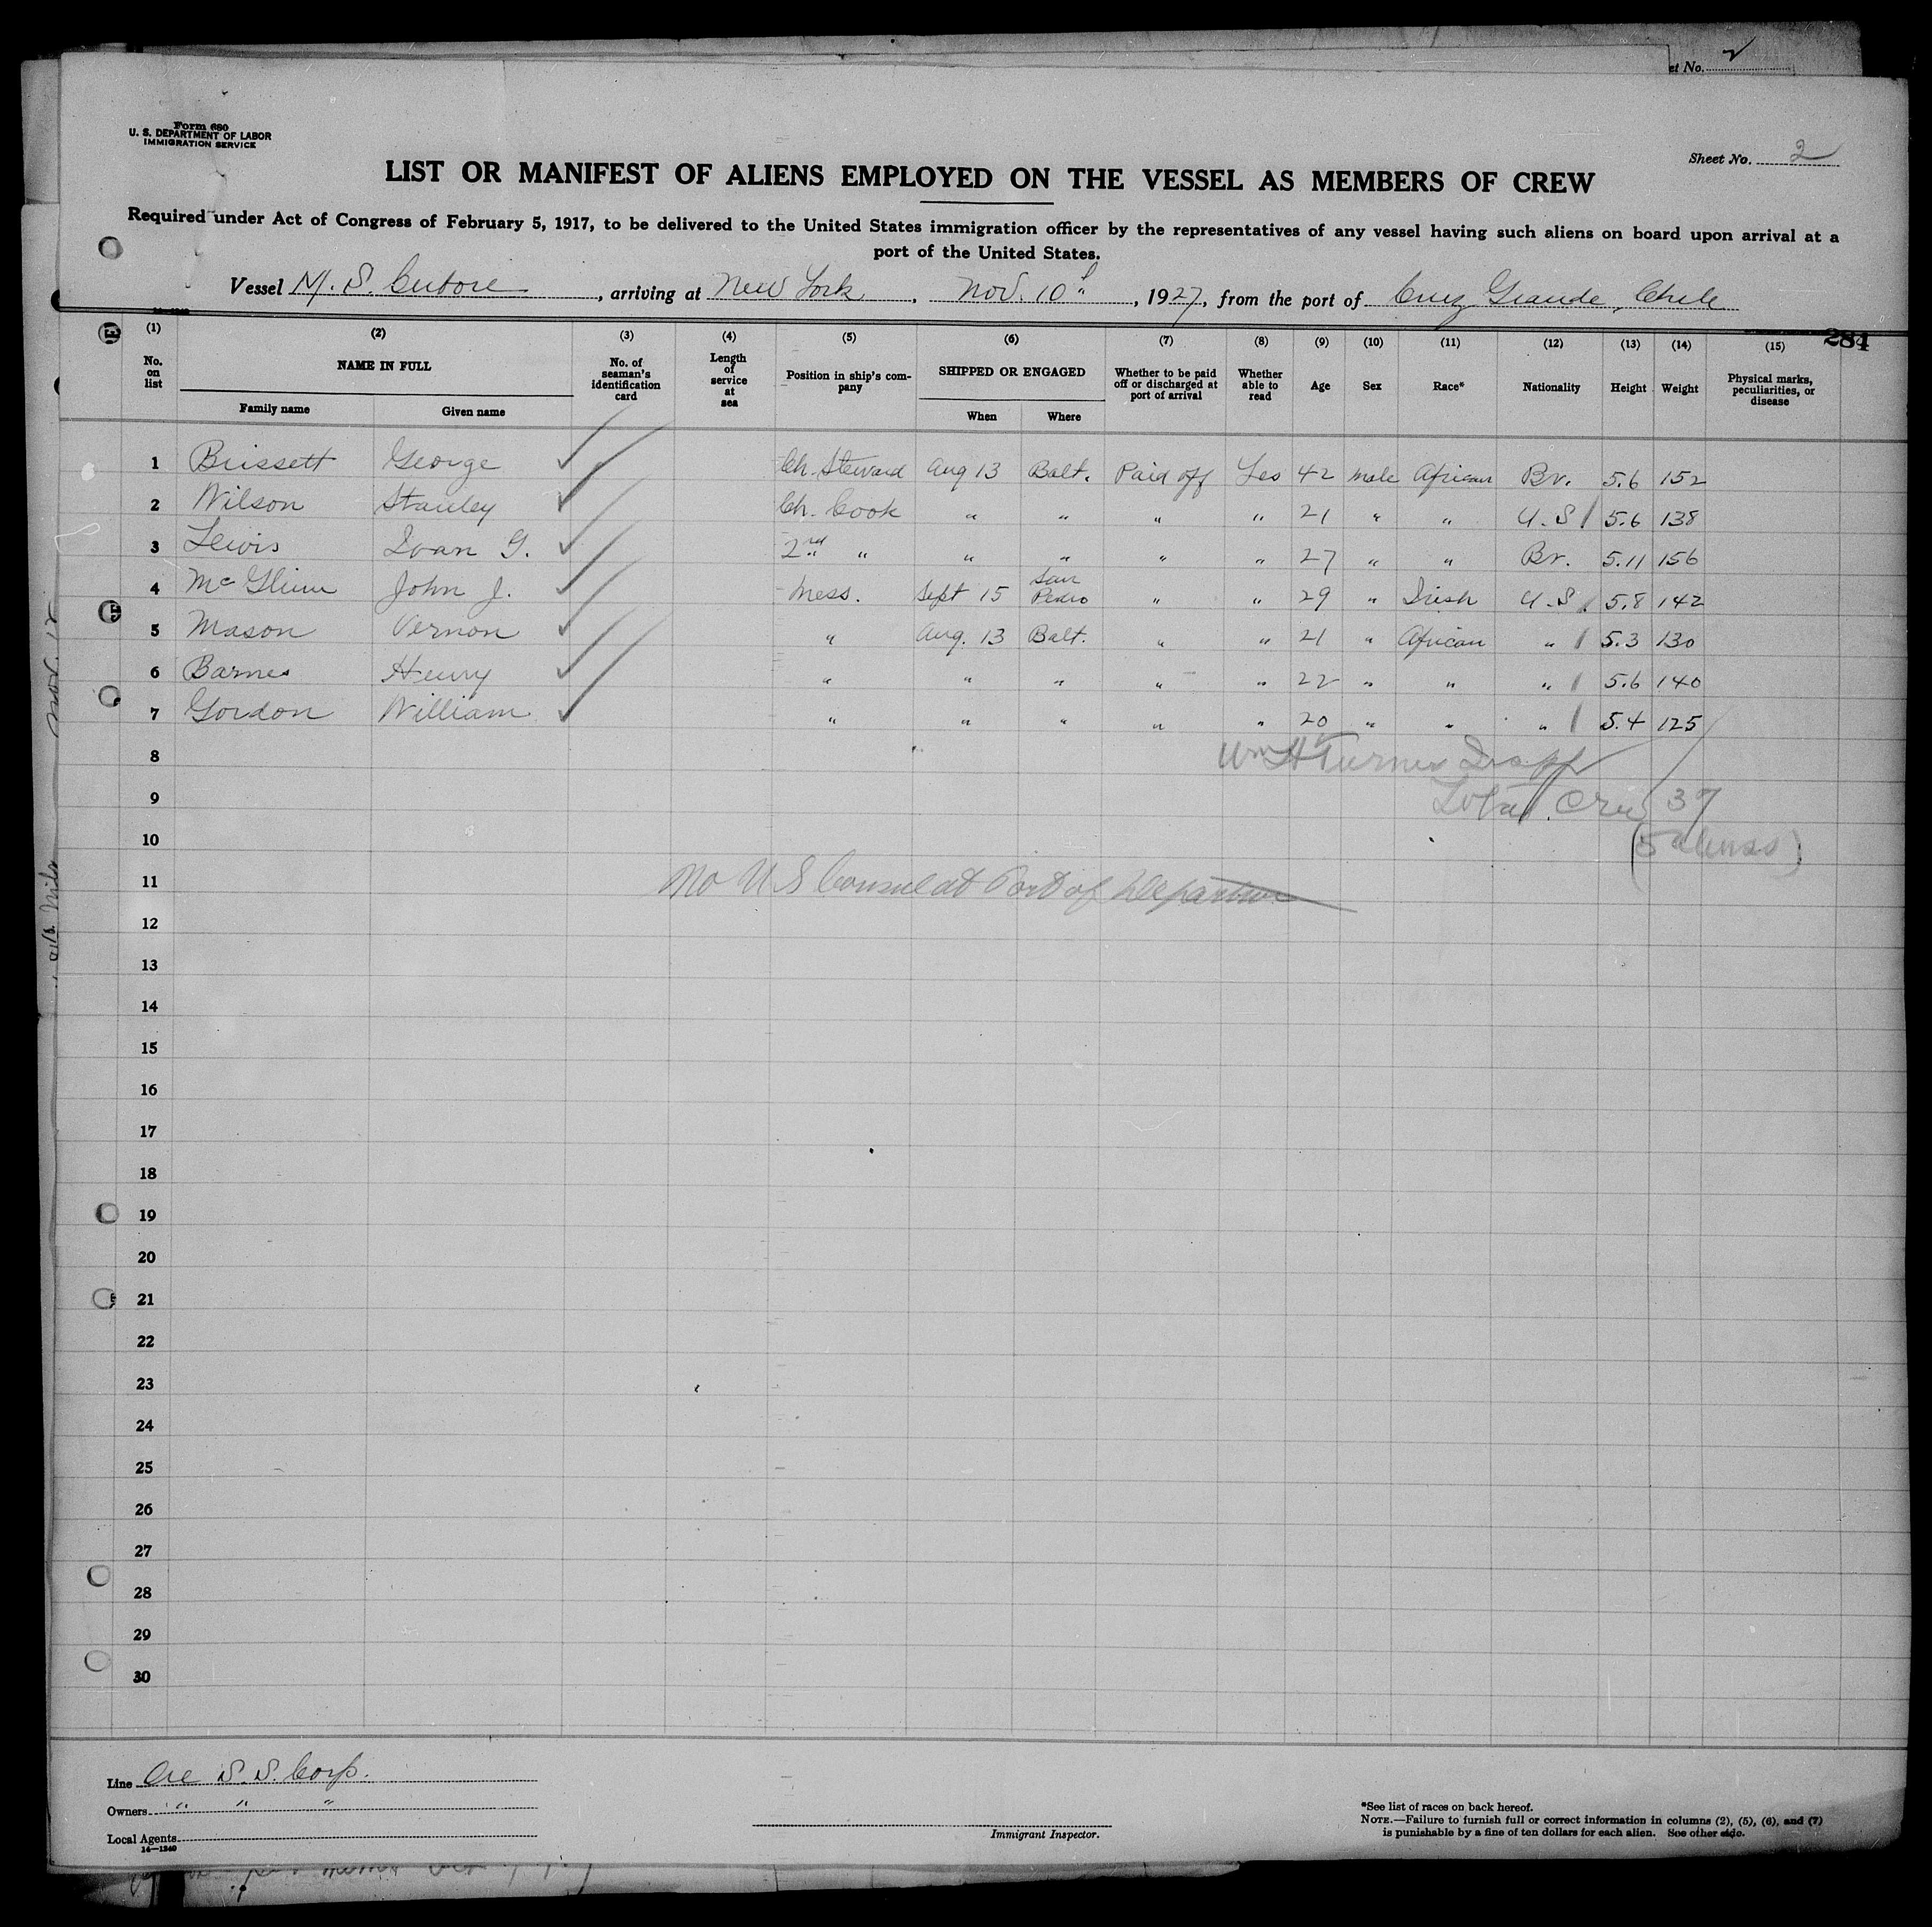 et No. 2
Form 680
U. S. DEPARTMENT OF LABOR
IMMIGRATION SERVICE
Sheet No. 2
LIST OR MANIFEST OF ALIENS EMPLOYED ON THE VESSEL AS MEMBERS OF CREW
Required under Act of Congress of February 5, 1917, to be delivered to the United States immigration officer by the representatives of any vessel having such aliens on board upon arrival at a
port of the United States.
Vessel M. S. Cubore, arriving at New York, Nov. 10th, 1927, from the port of Cruz Grande, Chile
284
(1) (2) (3) (4) (5) (6) (7) (8) (9) (10) (11) (12) (13) (14) (15)
No. on list NAME IN FULL No. of seaman's identification card Length of service at sea Position in ship's company SHIPPED OR ENGAGED Whether to be paid off or discharged at port of arrival Whether able to read Age Sex Race* Nationality Height Weight Physical marks, peculiarities, or disease
Family name Given name When Where
1 Brissett George Ch. Steward Aug 13 Balt. Paid off Yes 42 male African Br. 5.6 152
2 Wilson Stanley Ch. Cook " " " " 21 " " U.S 5.6 138
3 Lewis Ivan G. 2nd " " " " " 27 " " Br. 5.11 156
4 McGlinn John J. Mess. Sept 15 San Pedro " " 29 " Irish U.S 5.8 142
5 Mason Vernon " Aug. 13 Balt. " " 21 " African " 5.3 130
6 Barnes Henry " " " " " 22 " " " 5.6 140
7 Gordon William " " " " " 20 " " " 5.4 125
8 Wm H Turner Insp
9 Total Crew 37
10 (5 aliens)
11 No U S Consul at Port of Departure
12
13
14
15
16
17
18
19
20
21
22
23
24
25
26
27
28
29
30
Nov. 12
Line Ore S. S. Corp.
Owners " " "
Local Agents
14—1240
Immigrant Inspector.
*See list of races on back hereof.
NOTE.—Failure to furnish full or correct information in columns (2), (5), (6), and (7)
is punishable by a fine of ten dollars for each alien. See other side.